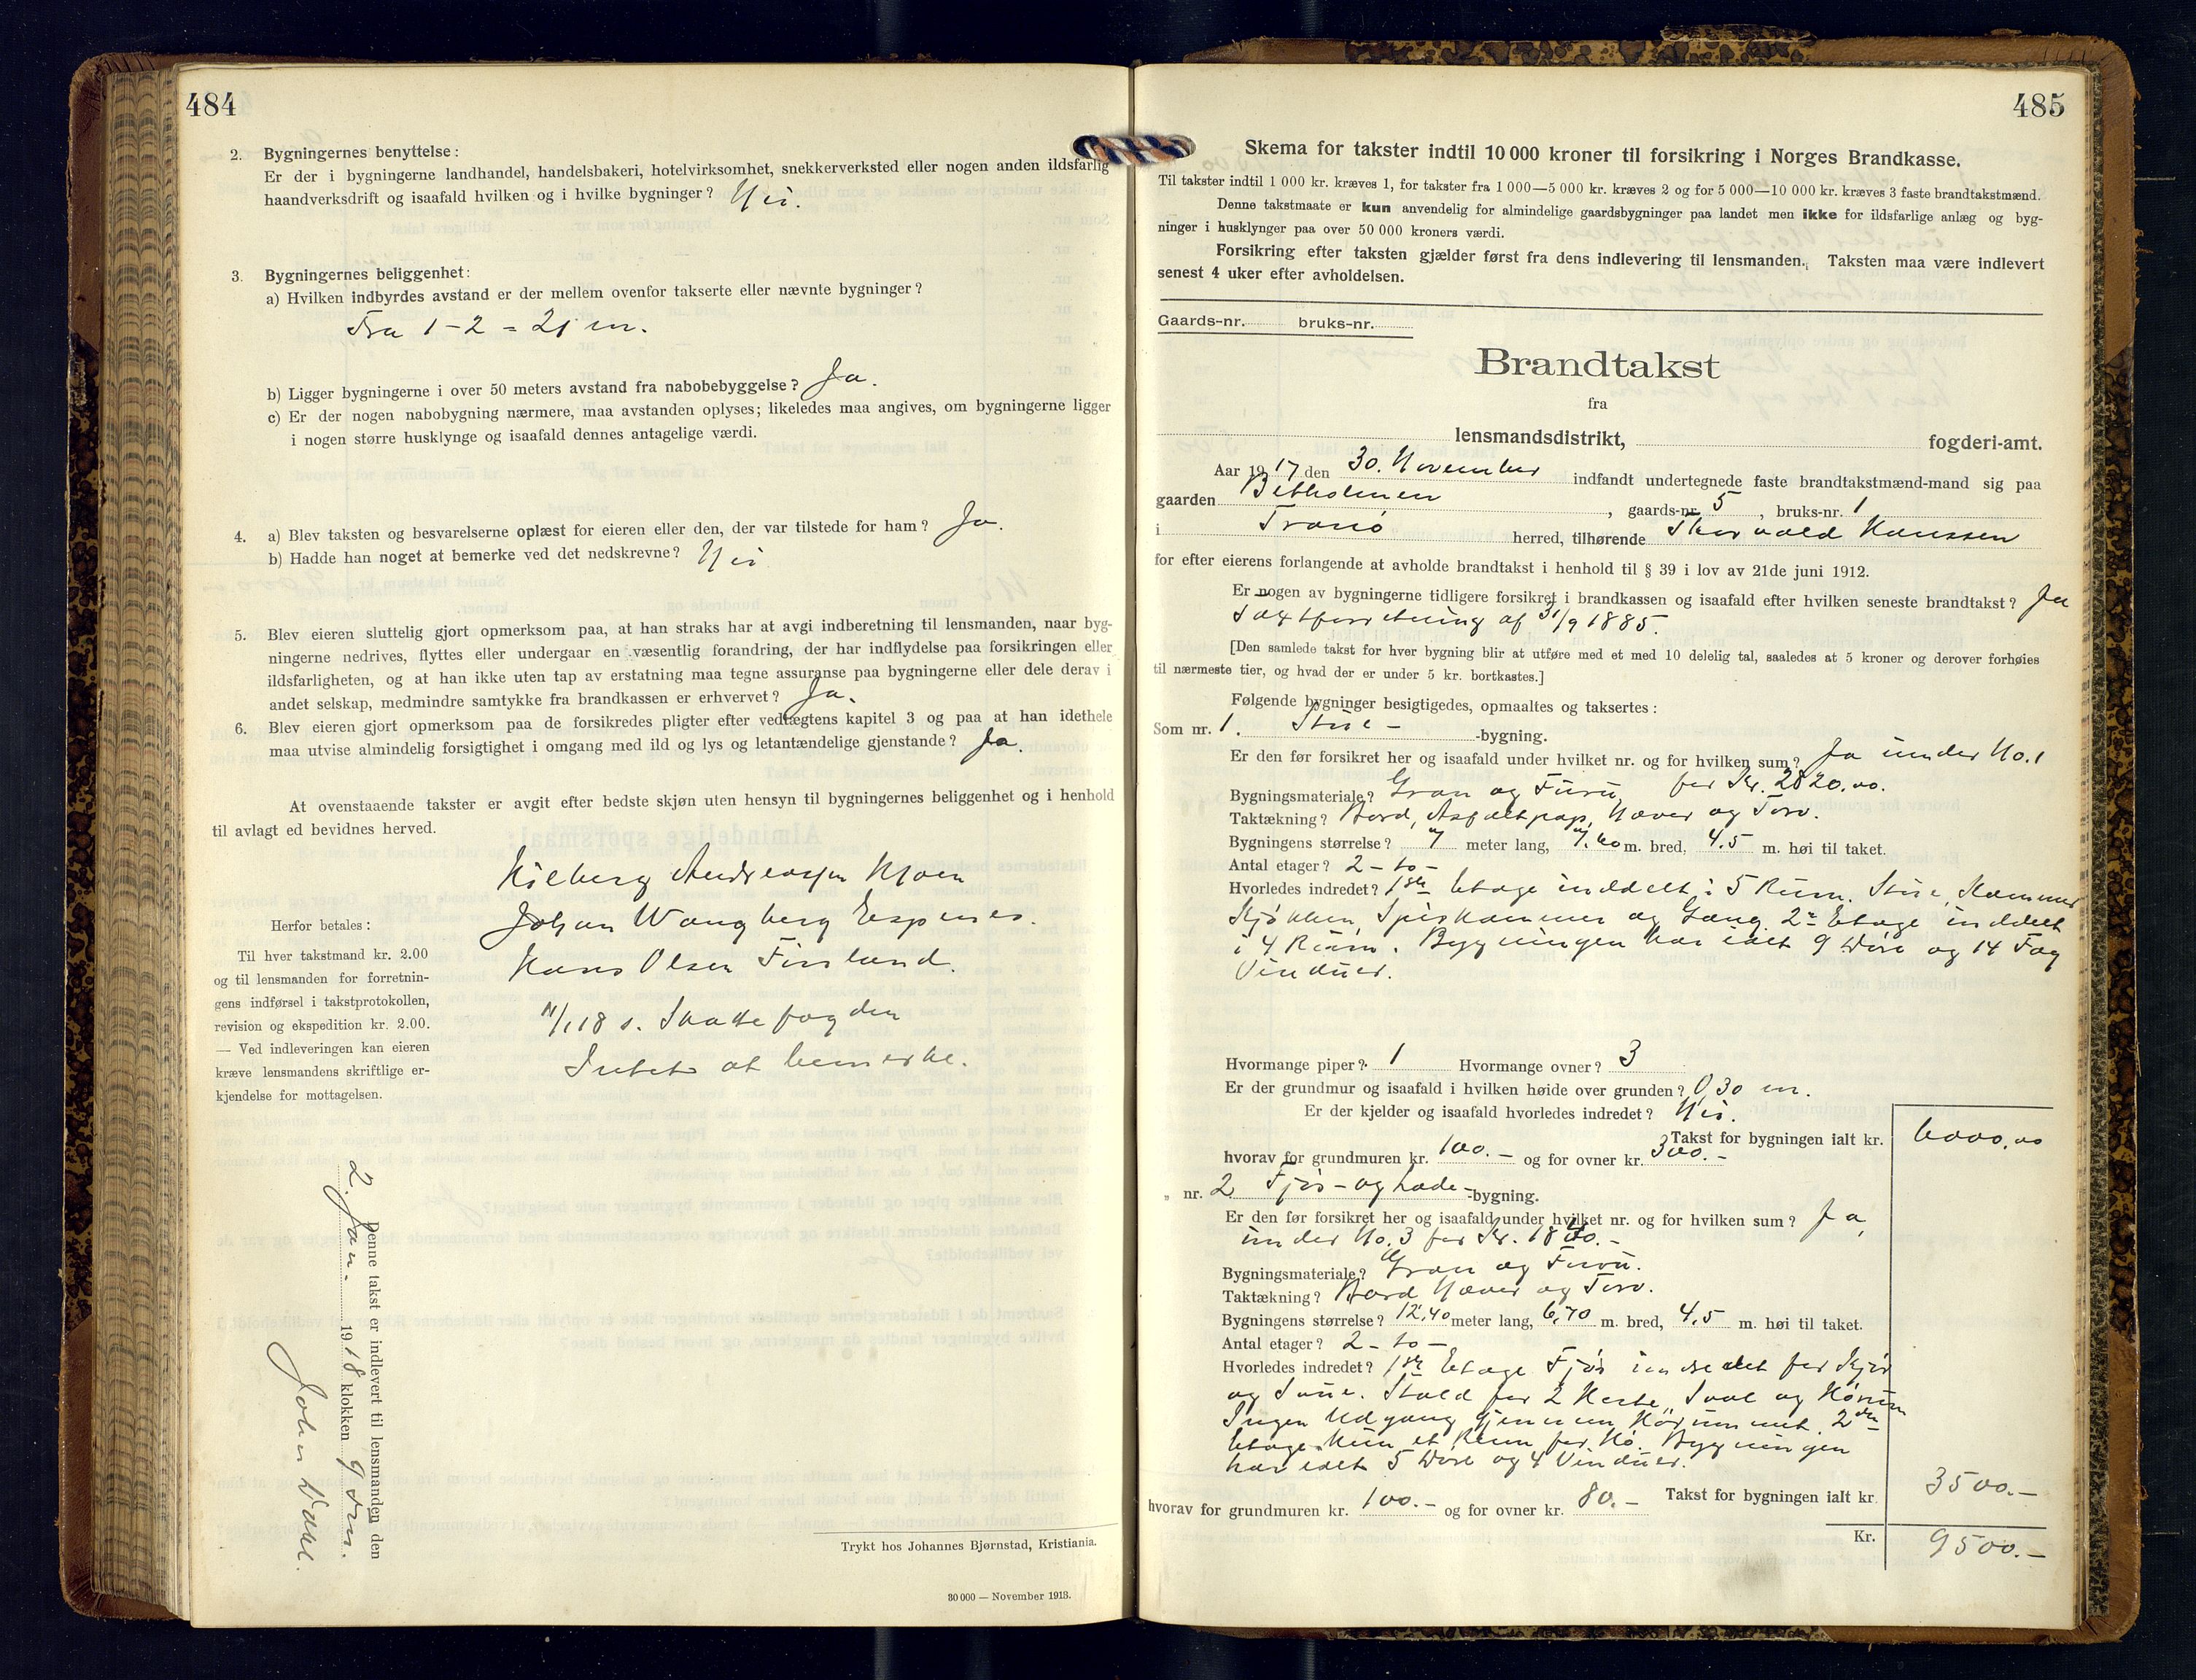 484
2. Bygningernes benyttelse:
Er der i bygningerne landhandel, handelsbakeri, hotelvirksomhet, snekkerverksted eller nogen anden ildsfarlig
haandverksdrift og isaafald hvilken og i hvilke bygninger? Nei.
3. Bygningernes beliggenhet:
a) Hvilken indbyrdes avstand er der mellem ovenfor takserte eller nævnte bygninger?
Fra 1-2 = 21 m.
b) Ligger bygningerne i over 50 meters avstand fra nabobebyggelse? Ja.
c) Er der nogen nabobygning nærmere, maa avstanden oplyses; likeledes maa angives, om bygningerne ligger
i nogen større husklynge og isaafald dennes antagelige værdi.
4. a) Blev taksten og besvarelserne oplæst for eieren eller den, der var tilstede for ham? Ja.
b) Hadde han noget at bemerke ved det nedskrevne? Nei
5. Blev eieren sluttelig gjort opmerksom paa, at han straks har at avgi indberetning til lensmanden, naar byg-
ningerne nedrives, flyttes eller undergaar en væsentlig forandring, der har indflydelse paa forsikringen eller
ildsfarligheten, og at han ikke uten tap av erstatning maa tegne assuranse paa bygningerne eller dele derav i
andet selskap, medmindre samtykke fra brandkassen er erhvervet? Ja.
6. Blev eieren gjort opmerksom paa de forsikredes pligter efter vedtægtens kapitel 3 og paa at han idethele
maa utvise almindelig forsigtighet i omgang med ild og lys og letantændelige gjenstande? Ja.
At ovenstaaende takster er avgit efter bedste skjøn uten hensyn til bygningernes beliggenhet og i henhold
til avlagt ed bevidnes herved.
Hilberg Andreassen Moen
Johan Wangberg Espenes.
Hans Olsen Finland.
11/1 18 s. Skattefogden
Intet at bemerke.
Herfor betales:
Til hver takstmand kr. 2.00
og til lensmanden for forretnin-
gens indførsel i takstprotokollen,
revision og ekspedition kr. 2.00.
— Ved indleveringen kan eieren
kræve lensmandens skriftlige er-
kjendelse for mottagelsen.
Denne takst er indlevert til lensmanden den
2. Jan. 1918 klokken 9 fm.
Johan Dahl.
Trykt hos Johannes Bjørnstad, Kristiania.
30 000 — November 1913.
485
Skema for takster indtil 10 000 kroner til forsikring i Norges Brandkasse.
Til takster indtil 1 000 kr. kræves 1, for takster fra 1 000—5 000 kr. kræves 2 og for 5 000—10 000 kr. kræves 3 faste brandtakstmænd.
Denne takstmaate er kun anvendelig for almindelige gaardsbygninger paa landet men ikke for ildsfarlige anlæg og byg-
ninger i husklynger paa over 50 000 kroners værdi.
Forsikring efter taksten gjælder først fra dens indlevering til lensmanden. Taksten maa være indlevert
senest 4 uker efter avholdelsen.
Gaards-nr. bruks-nr.
Brandtakst
fra
lensmandsdistrikt, fogderi-amt.
Aar 1917 den 30. November indfandt undertegnede faste brandtakstmænd-mand sig paa
gaarden Betholmen, gaards-nr. 5, bruks-nr. 1
i Tranø herred, tilhørende Thorvald Hanssen
for efter eierens forlangende at avholde brandtakst i henhold til § 39 i lov av 21de juni 1912.
Er nogen av bygningerne tidligere forsikret i brandkassen og isaafald efter hvilken seneste brandtakst? Ja
Taxtforretning af 31/9 1885.
[Den samlede takst for hver bygning blir at utføre med et med 10 delelig tal, saaledes at 5 kroner og derover forhøies
til nærmeste tier, og hvad der er under 5 kr. bortkastes.]
Følgende bygninger besigtigedes, opmaaltes og taksertes:
Som nr. 1. Stue- -bygning.
Er den før forsikret her og isaafald under hvilket nr. og for hvilken sum? Ja under No. 1
Bygningsmateriale? Gran og Furu, for Kr. 2820.00.
Taktækning? Bord, Asfaltpap, Næver og Torv.
Bygningens størrelse? 7 meter lang, 7.60 m. bred, 4.5 m. høi til taket.
Antal etager? 2 - to -
Hvorledes indredet? 1ste Etage inddelt i 5 Rum. Stue, Kammer
Kjøkken, Spiskammer og Gang. 2n Etage inddelt
i 4 Rum. Bygningen har ialt 9 Døre og 14 Fag
Vinduer.
Hvormange piper? 1 Hvormange ovner? 3
Er der grundmur og isaafald i hvilken høide over grunden? 0,30 m.
Er der kjelder og isaafald hvorledes indredet? Nei.
Takst for bygningen ialt kr. 6000,00
hvorav for grundmuren kr. 100.- og for ovner kr. 300.-
„ nr. 2 Fjøs- og Lade- -bygning.
Er den før forsikret her og isaafald under hvilket nr. og for hvilken sum? Ja,
under No. 3 for Kr. 1840.-
Bygningsmateriale? Gran og Furu.
Taktækning? Bord Næver og Torv.
Bygningens størrelse? 12,40 meter lang, 6,70 m. bred, 4,5 m. høi til taket.
Antal etager? 2 - to -
Hvorledes indredet? 1ste Etage Fjøs indredet for Kjør
og Saue. Stald for 2 Heste, Sval og Hørum
Ingen Udgang gjennem Hørummet. 2den
Etage kun et Rum for Hø. Bygningen
har ialt 5 Døre og 4 Vinduer.
Takst for bygningen ialt kr. 3500.-
hvorav for grundmuren kr. 100.- og for ovner kr. 80.-
Kr. 9500.-